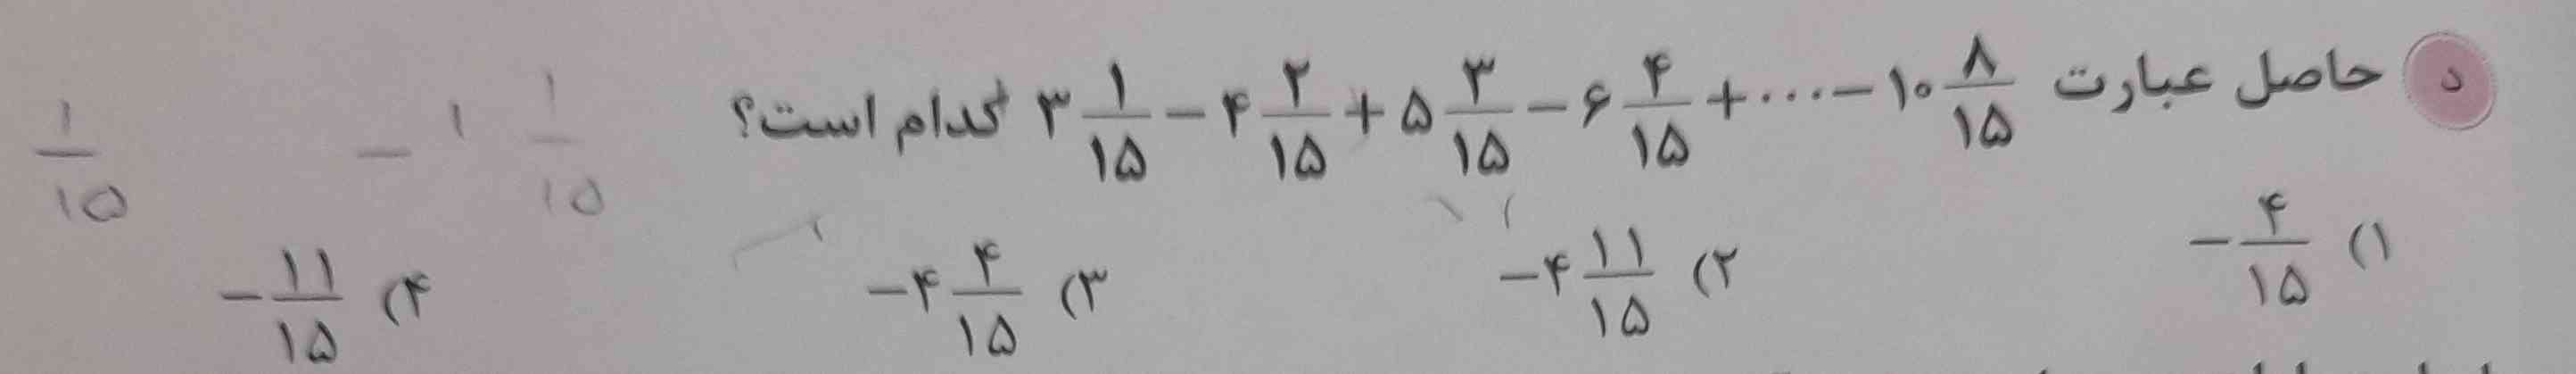 د حاصل عبارت ۳ ۱/۱۵ − ۴ ۲/۱۵ + ۵ ۳/۱۵ − ۶ ۴/۱۵ + ... − ۱۰ ۸/۱۵ کدام است؟
۱) −۴/۱۵ ۲) −۴ ۱۱/۱۵ ۳) −۴ ۴/۱۵ ۴) −۱۱/۱۵
۱/۱۵ − ۱ ۱/۱۵